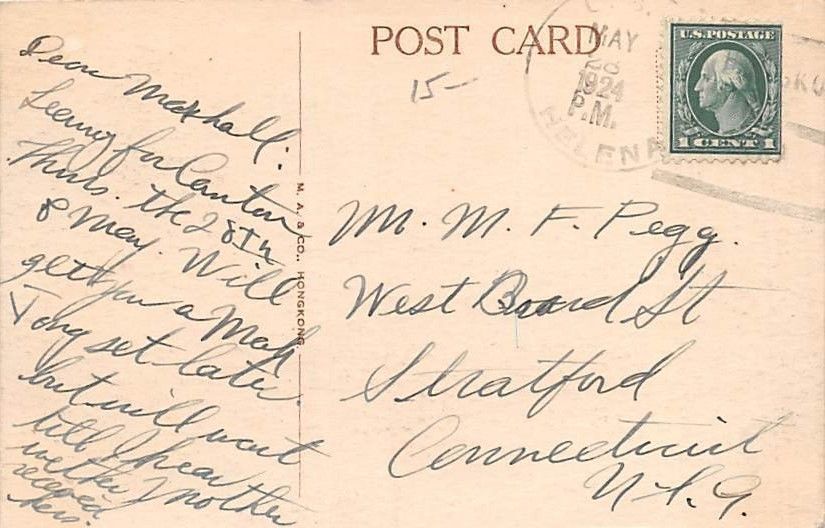 POST CARD
15-
MAY
28
1924
P.M.
HELENA
U.S. POSTAGE
1 CENT 1
Dear Marshall:
Leaving for Canton
Thurs. the 28th
of May. Will
get you a Mah
Jong set later.
but will wait
till I hear
wether mother
received
hers.
M. A. & CO., HONGKONG.
Mr. M. F. Pegg.
West Broad St
Stratford
Connecticut
U.S.A.